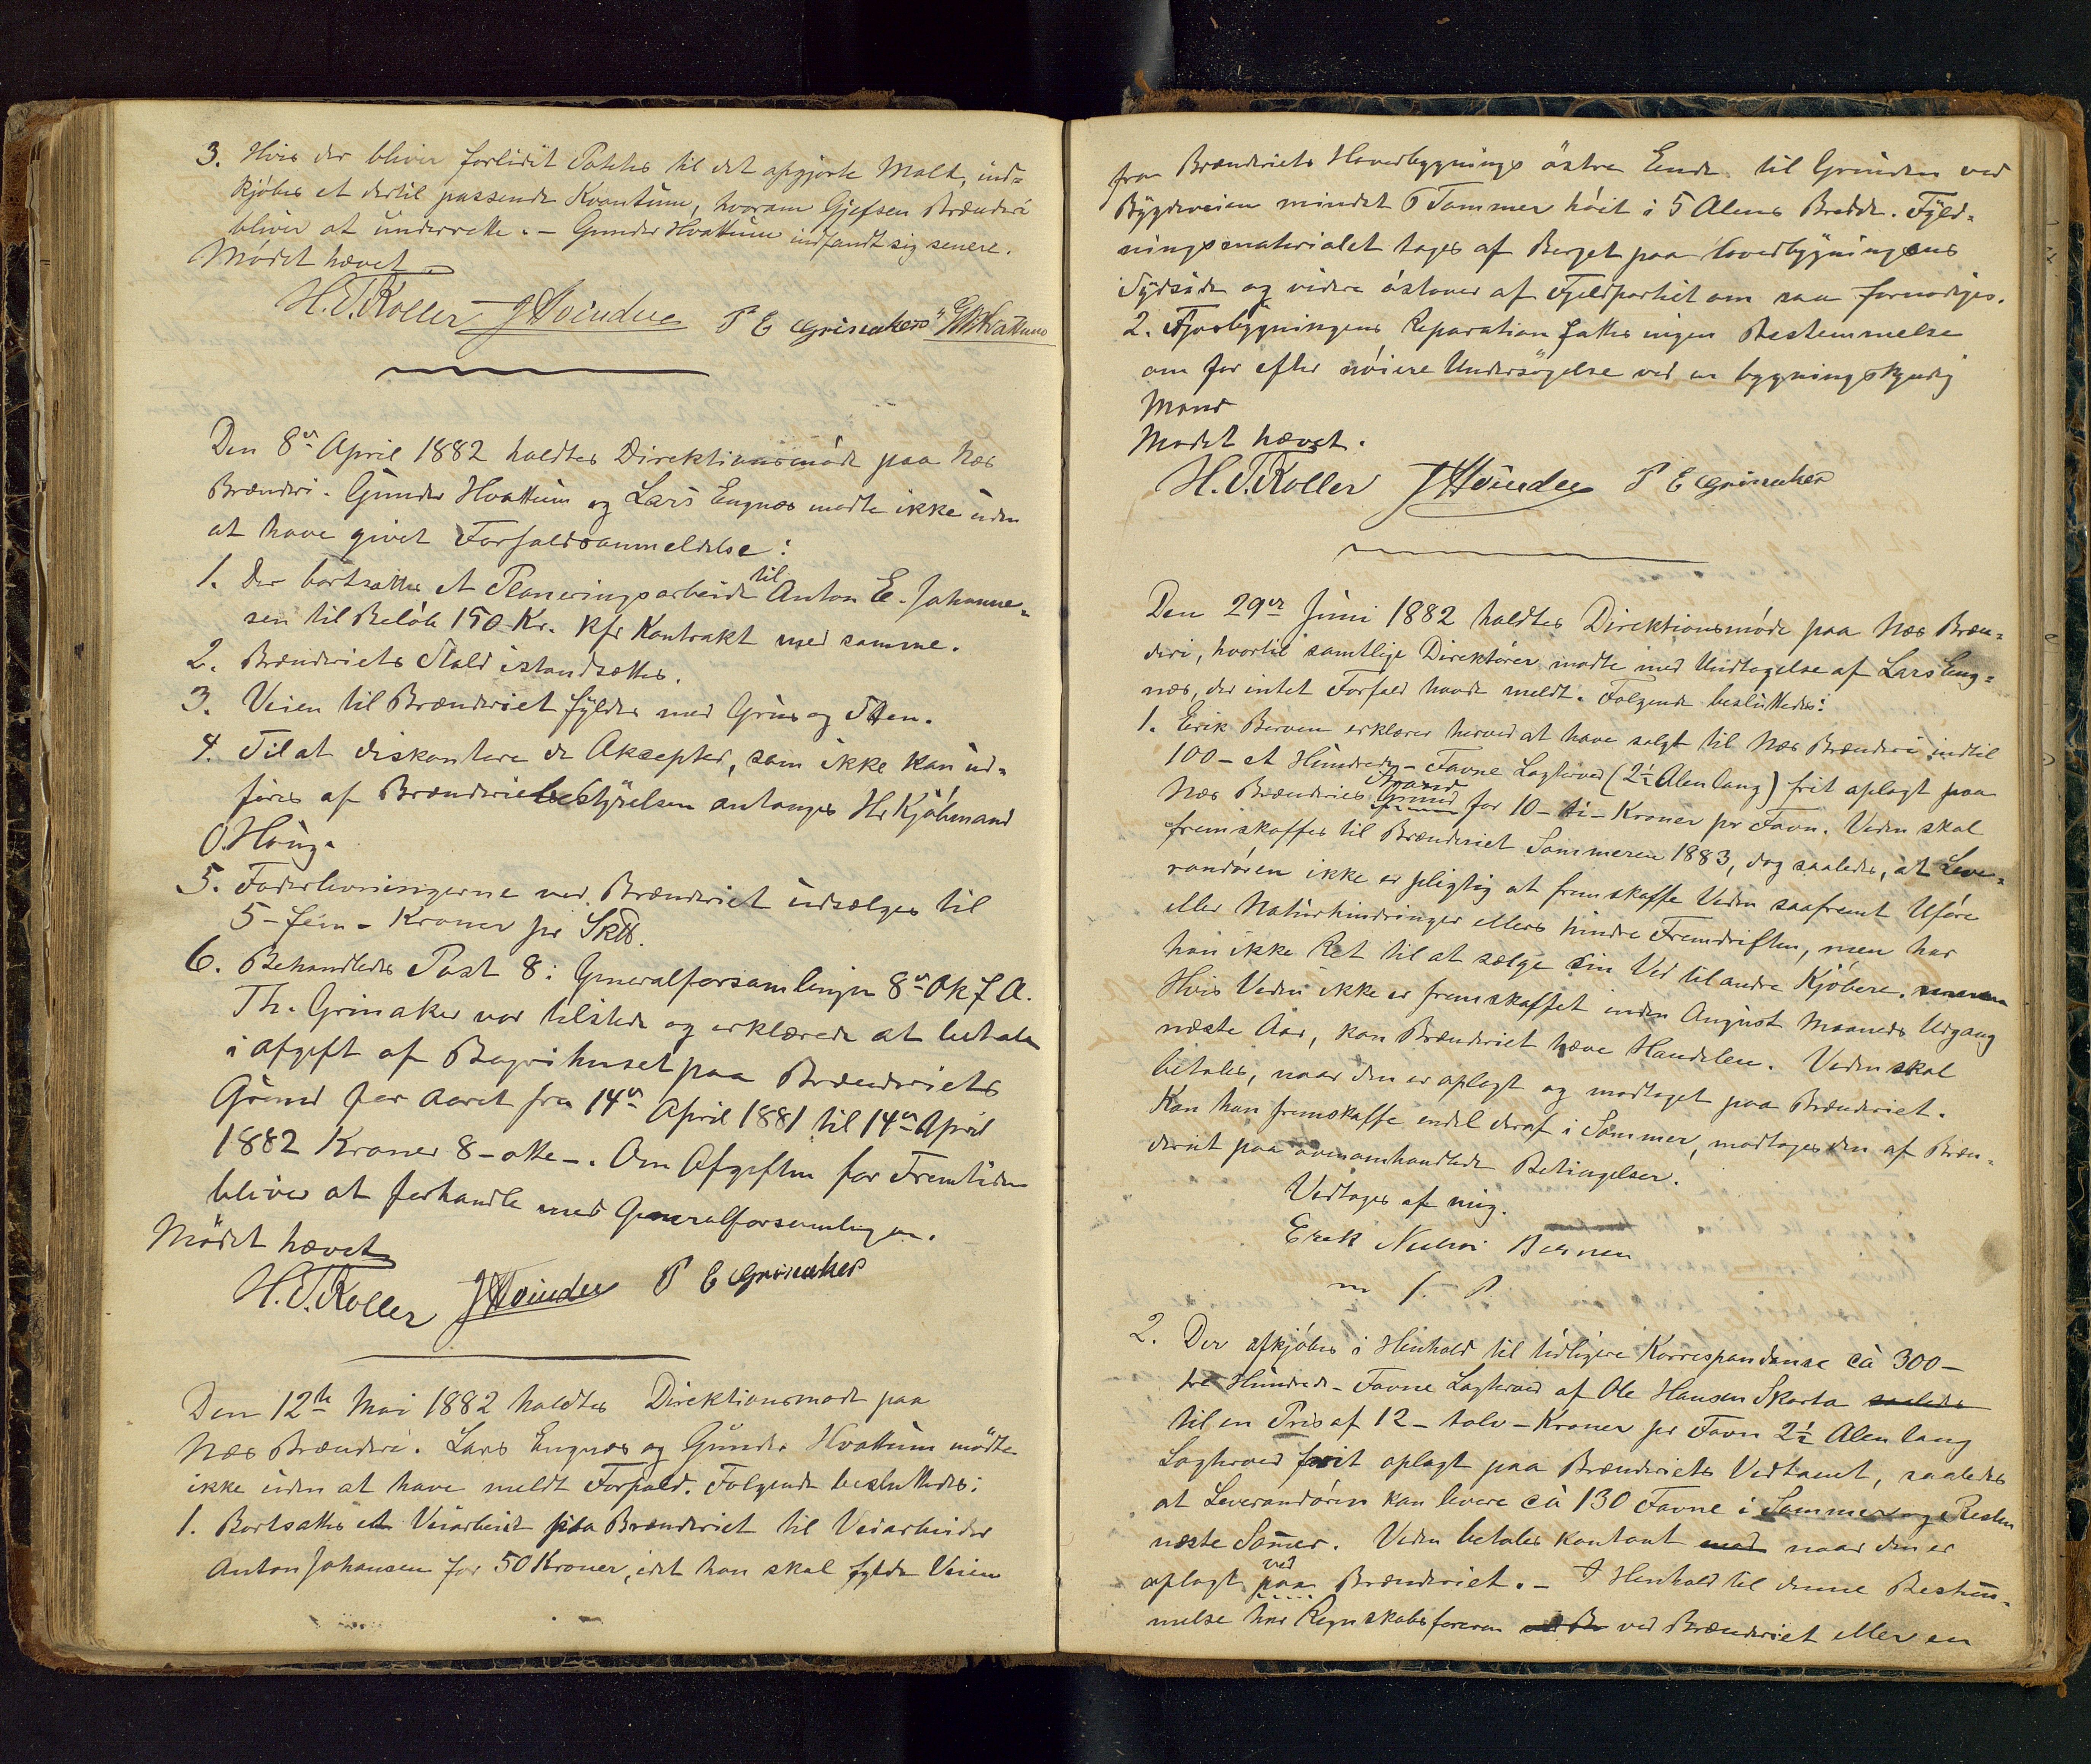 3. Hvis der bliver forlidet Pottes til det opgjorte Malt, ind=
kjøbes et dertil passende Kvantum, hvorom Gjefsen Brænderi
bliver at underrette. – Gunder Hvattum indfandt sig senere.
Mødet hævet
H. T. Koller JHvinden P E Grinaker GHvattum
Den 8de April 1882 holdtes Direktionsmøde paa Næs
Brænderi. Gunder Hvattum og Lars Engnæs mødte ikke uden
at have givet Forfaldsanmeldelse:
1. Der bortsattes et Planeringsarbeide til Anton E. Johanne=
sen til Beløb 150 Kr. Kfr Kontrakt med samme.
2. Brænderiets Stald istandsættes.
3. Veien til Brænderiet fyldes med Grus og Sten.
4. Til at diskontere de Aksepter, som ikke kan ud=
føres af Brænderiebestyrelsen antages Hr Kjøbmand
O. Haug.
5. Foderlevningerne ved Brænderiet udsælges til
5 – fem – Kroner pr Sk℔.
6. Behandledes Post 8 i Generalforsamlingen 8de Ok f A.
Th. Grinaker var tilstede og erklærede at betale
i Afgift af Bagerihuset paa Brænderiets
Grund for Aaret fra 14de April 1881 til 14de April
1882 Kroner 8 – otte –. Om Afgiften for Fremtiden
bliver at forhandle med Generalforsamlingen.
Mødet hævet
H. T. Koller JHvinden P E Grinaker
Den 12te Mai 1882 holdtes Direktionsmøde paa
Næs Brænderi. Lars Engnæs og Gunder Hvattum mødte
ikke uden at have meldt Forfald. Følgende besluttedes:
1. Bortsattes et Veiarbeid paa Brænderiet til Veiarbeider
Anton Johansen for 50 Kroner, idet han skal fylde Veien
fra Brænderiets Hovedbygnings østre Ende til Grinden ved
Bygdeveien mindst 6 Tommer høit i 5 Alens Bredde. Fyld=
ningsmaterialet tages af Berget paa Hovedbygningens
Sydside og videre østover af Fjeldpartiet om saa fornødiges.
2. Fjøsbygningens Reparation fattes ingen Bestemmelse
om før efter nøiere Undersøgelse ved en bygningskyndig
Mand
Mødet hævet.
H. T. Koller JHvinden P E Grinaker
Den 29de Juni 1882 holdtes Direktionsmøde paa Næs Bræn=
deri, hvortil samtlige Direktører mødte med Undtagelse af Lars Eng=
næs, der intet Forfald havde meldt. Følgende besluttedes:
1. Erik Berven erklærer herved at have solgt til Næs Brænderi indtil
100 – et Hundrede – Favne Lagterved (2½ Alen lang) frit oplagt paa
Næs Brænderies Grund Strand for 10 – ti – Kroner pr Favn. Veden skal
fremskaffes til Brænderiet Sommeren 1883, dog saaledes, at Leve=
randøren ikke er pligtig at fremskaffe Veden saafremt Uføre
eller Naturhindringer ellers hindre Fremdriften, men har
han ikke Ret til at sælge sin Ved til andre Kjøbere.
Hvis Veden ikke er fremskaffet inden August Maaneds Udgang
næste Aar, kan Brænderiet hæve Handelen. Veden skal
betales, naar den er oplagt og modtaget paa Brænderiet.
Kan han fremskaffe endel deraf i Sommer, modtages den af Bræn=
deriet paa ovenomhandlede Betingelser.
Vedtages af mig.
Erek Berven
m f. P.
2. Der afkjøbes i Henhold til tidligere Korrespondanse ca 300 –
tre Hundrede – Favne Lagterved af Ole Hansen Skarta saaledes
til en Pris af 12 – tolv – Kroner pr Favn 2½ Alen lang
Lagterved frit oplagt paa Brænderiets Vedtomt, saaledes
at Leverandøren kan levere ca 130 Favne i Sommer og Resten
næste Som̄er. Veden betales kontant med naar den er
oplagt paa ved Brænderiet. – I Henhold til denne Bestem̄=
melse har Regnskabsføreren ved Br ved Brænderiet eller en